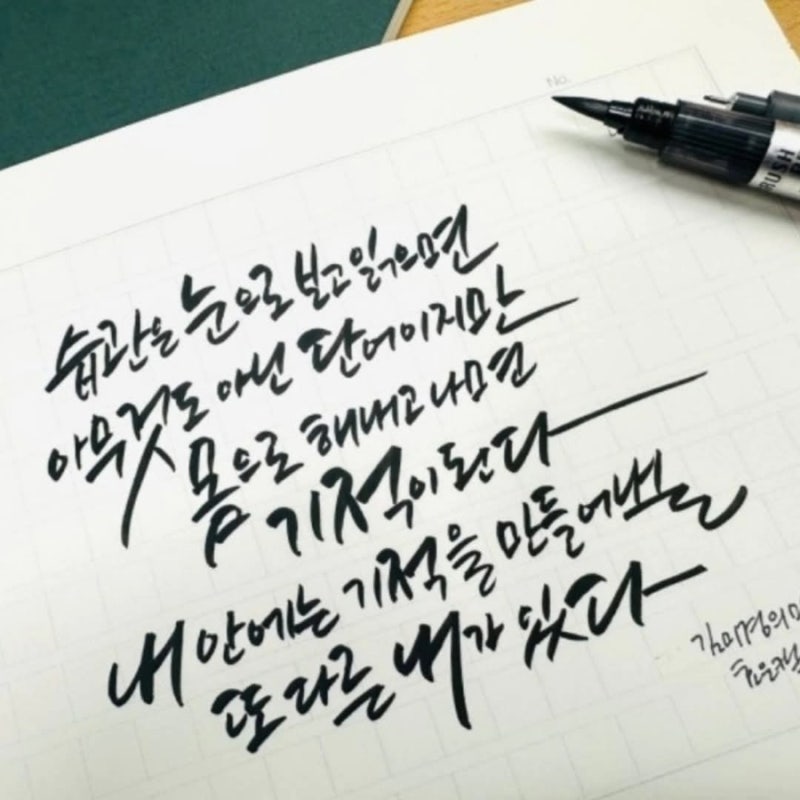 No.
습관은 눈으로 보고 읽으면
아무것도 아닌 단어이지만
몸으로 해내고 나면
기적이 된다
내 안에는 기적을 만들어낼
또 다른 내가 있다
김미경의 마
BRUSH